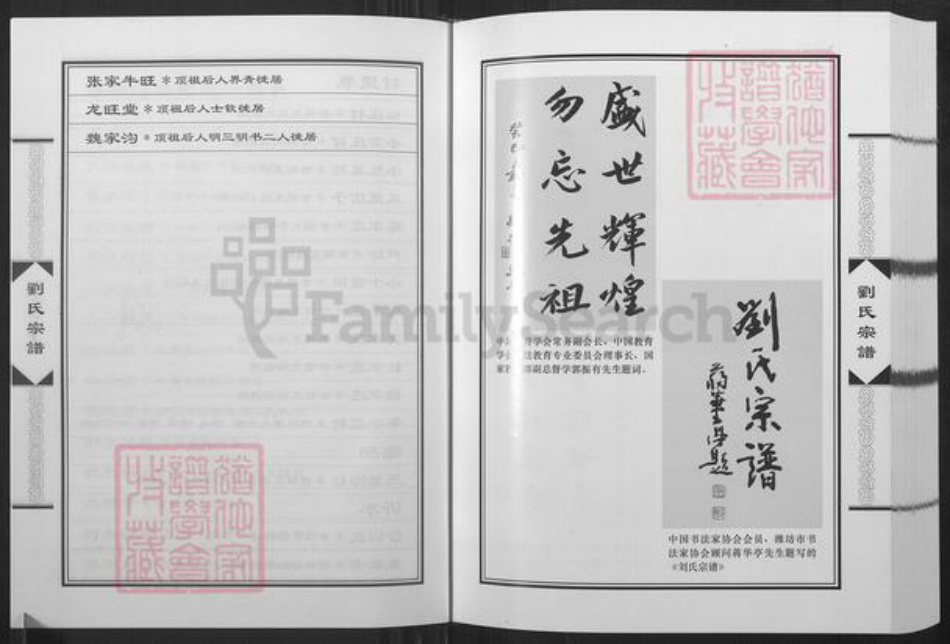 张家牛旺＊顶祖后人养青徙居
龙旺堂＊顶祖后人士钦徙居
魏家沟＊顶祖后人明三明书二人徙居
劉氏宗譜
猶他家
譜學會
收藏
FamilySearch
盛世輝煌
勿忘先祖
学会常务副会长，中国教育
法教育专业委员会理事长、国
副总督学郭振有先生题词。
劉氏宗譜
蔣華亭題
中国书法家协会会员，潍坊市书
法家协会顾问蒋华亭先生题写的
《刘氏宗谱》
猶他家
譜學會
收藏
劉氏宗譜